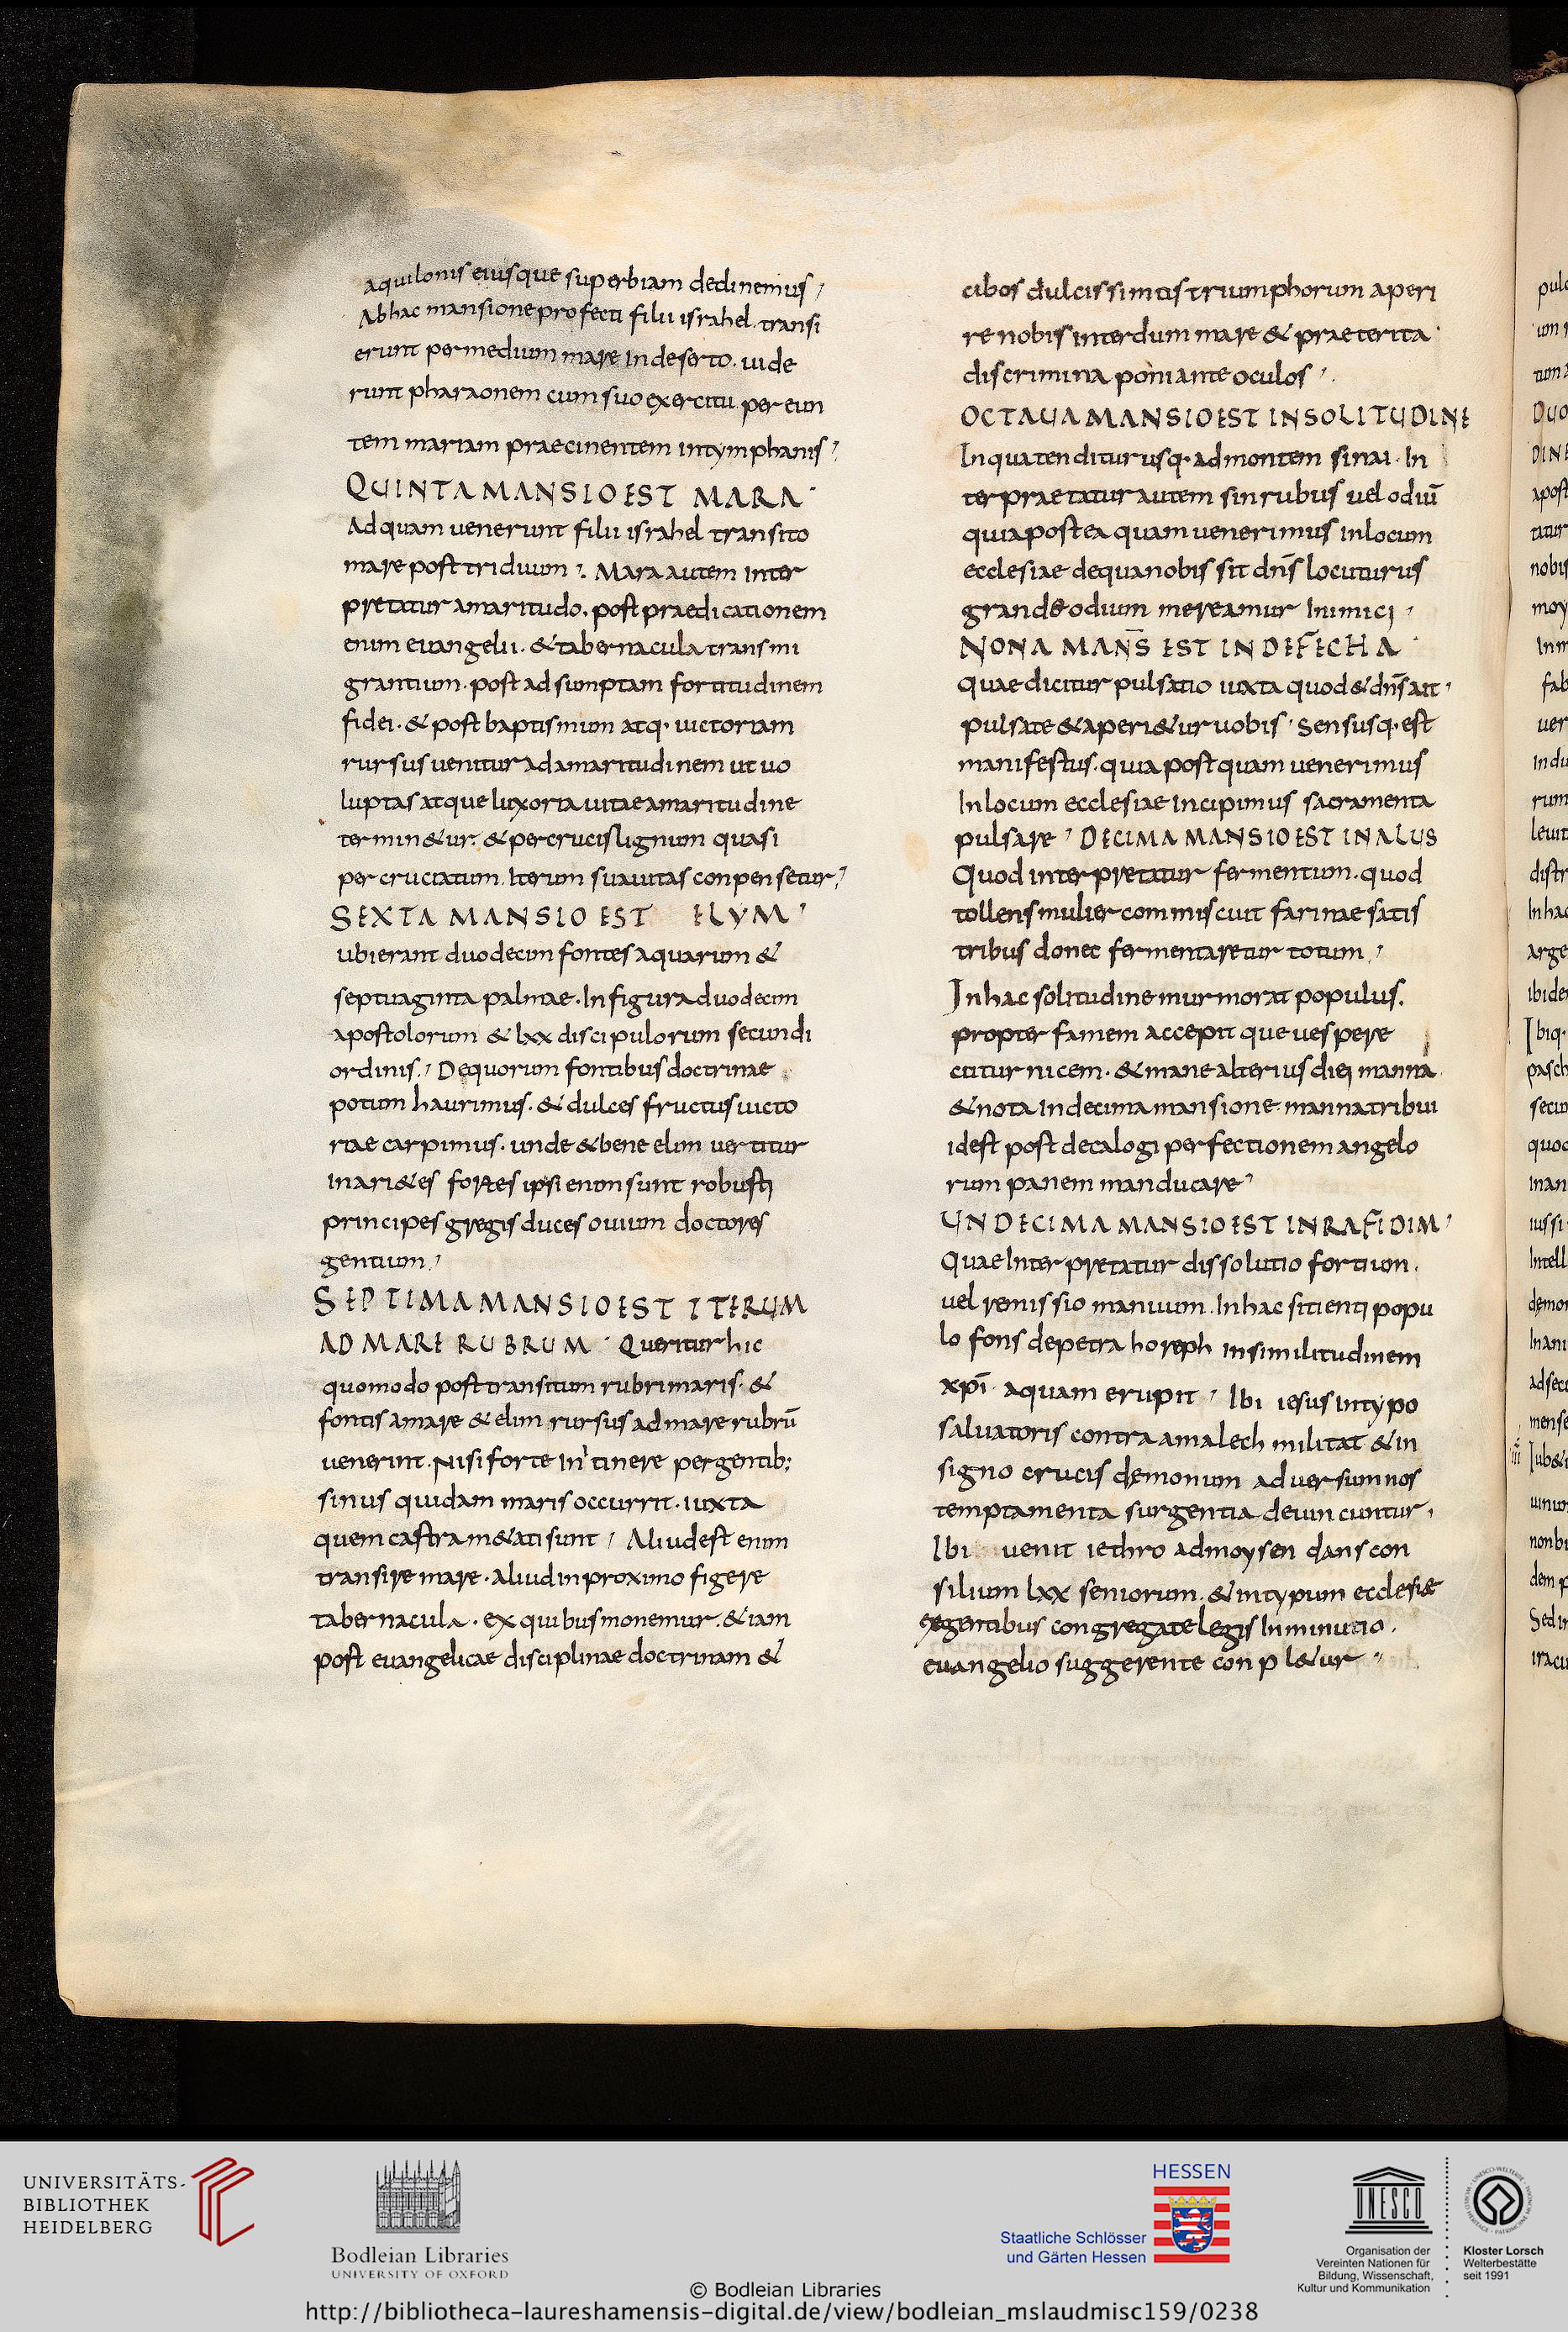 aquilonis eiusque superbiam declinemus
Ab hac mansione profecti filii israhel. transi
erunt per medium mare In deserto. uide
runt pharaonem cum suo exercitu. per eun
tem mariam praecinentem intymphanis
QUINTA MANSIO EST MARA
Ad quam uenerunt filii israhel transito
mare post triduum. Mara autem Inter
pretatur amaritudo. post praedicationem
enim euangelii. & tabernacula transmi
grantium. post adsumptam fortitudinem
fidei. & post baptismum atq· uictoriam
rursus uenitur ad amaritudinem ut uo
luptas atque luxoria uitae amaritudine
termin&ur. & per crucis lignum quasi
per cruciatum. Iterum suauitas conpensetur
SEXTA MANSIO EST ELYM
ubi erant duodecim fontes aquarum &
septuaginta palmae. In figura duodecim
apostolorum & lxx discipulorum secundi
ordinis. De quorum fontibus doctrinae
potum haurimus. & dulces fructus uicto
riae carpimus. unde & bene elim uertitur
in ari&es fortes ipsi enim sunt robusti
principes gregis duces ouium doctores
gentium
SEPTIMA MANSIO EST ITERUM
AD MARE RUBRUM Queritur hic
quomodo post transitum rubri maris. &
fontis amare & elim rursus ad mare rubrū
uenerint. Nisi forte In itinere pergentib;
sinus quidam maris occurrit. iuxta
quem castra m&ati sunt Aliud est enim
transire mare. aliud in proximo figere
tabernacula. ex quibus monemur. & iam
post euangelicae disciplinae doctrinam &
cibos dulcissimus triumphorum aperi
re nobis interdum mare & praeterita
discrimina poni ante oculos
OCTAUA MANSIO EST IN SOLITUDINE
In qua tenditur usq· ad montem sinai. In
terpraetatur autem sin rubus uel odiū
quia postea quam uenerimus in locum
ecclesiae de qua nobis sit dn̄s locuturus
grande odium mereamur Inimici
NONA MAN̄S EST IN DEFECHA
quae dicitur pulsatio iuxta quod & dn̄s ait
pulsate & aperi&ur uobis Sensusq· est
manifestus. quia postquam uenerimus
In locum ecclesiae Incipimus sacramenta
pulsare DECIMA MANSIO EST IN ALUS
Quod interpretatur fermentum. quod
tollens mulier commiscuit farinae satis
tribus donec fermentaretur totum
In hac solitudine murmorat populus.
propter famem accepit que uespere
cuturnicem. & mane alterius diei manna
& nota In decima mansione. manna tribui
idest post decalogi perfectionem angelo
rum panem manducare
UNDECIMA MANSIO EST IN RAFIDIM
Quae Interpretatur dissolutio fortium.
uel remissio manuum. In hac sitienti popu
lo fons de petra horeph in similitudinem
xpī aquam erupit Ibi iesus in typo
saluatoris contra amalech militat & in
signo crucis demonum aduersum nos
temptamenta surgentia deuincuntur
Ibi uenit iethro ad moysen dans con
silium lxx seniorum. & in typum ecclesiae
ex gentibus congregate legis In minutio.
euangelio suggerente conpl&ur
UNIVERSITÄTS-
BIBLIOTHEK
HEIDELBERG
Bodleian Libraries
UNIVERSITY OF OXFORD
HESSEN
Staatliche Schlösser
und Gärten Hessen
UNESCO
Organisation der
Vereinten Nationen für
Bildung, Wissenschaft,
Kultur und Kommunikation
Kloster Lorsch
Welterbestätte
seit 1991
© Bodleian Libraries
http://bibliotheca-laureshamensis-digital.de/view/bodleian_mslaudmisc159/0238